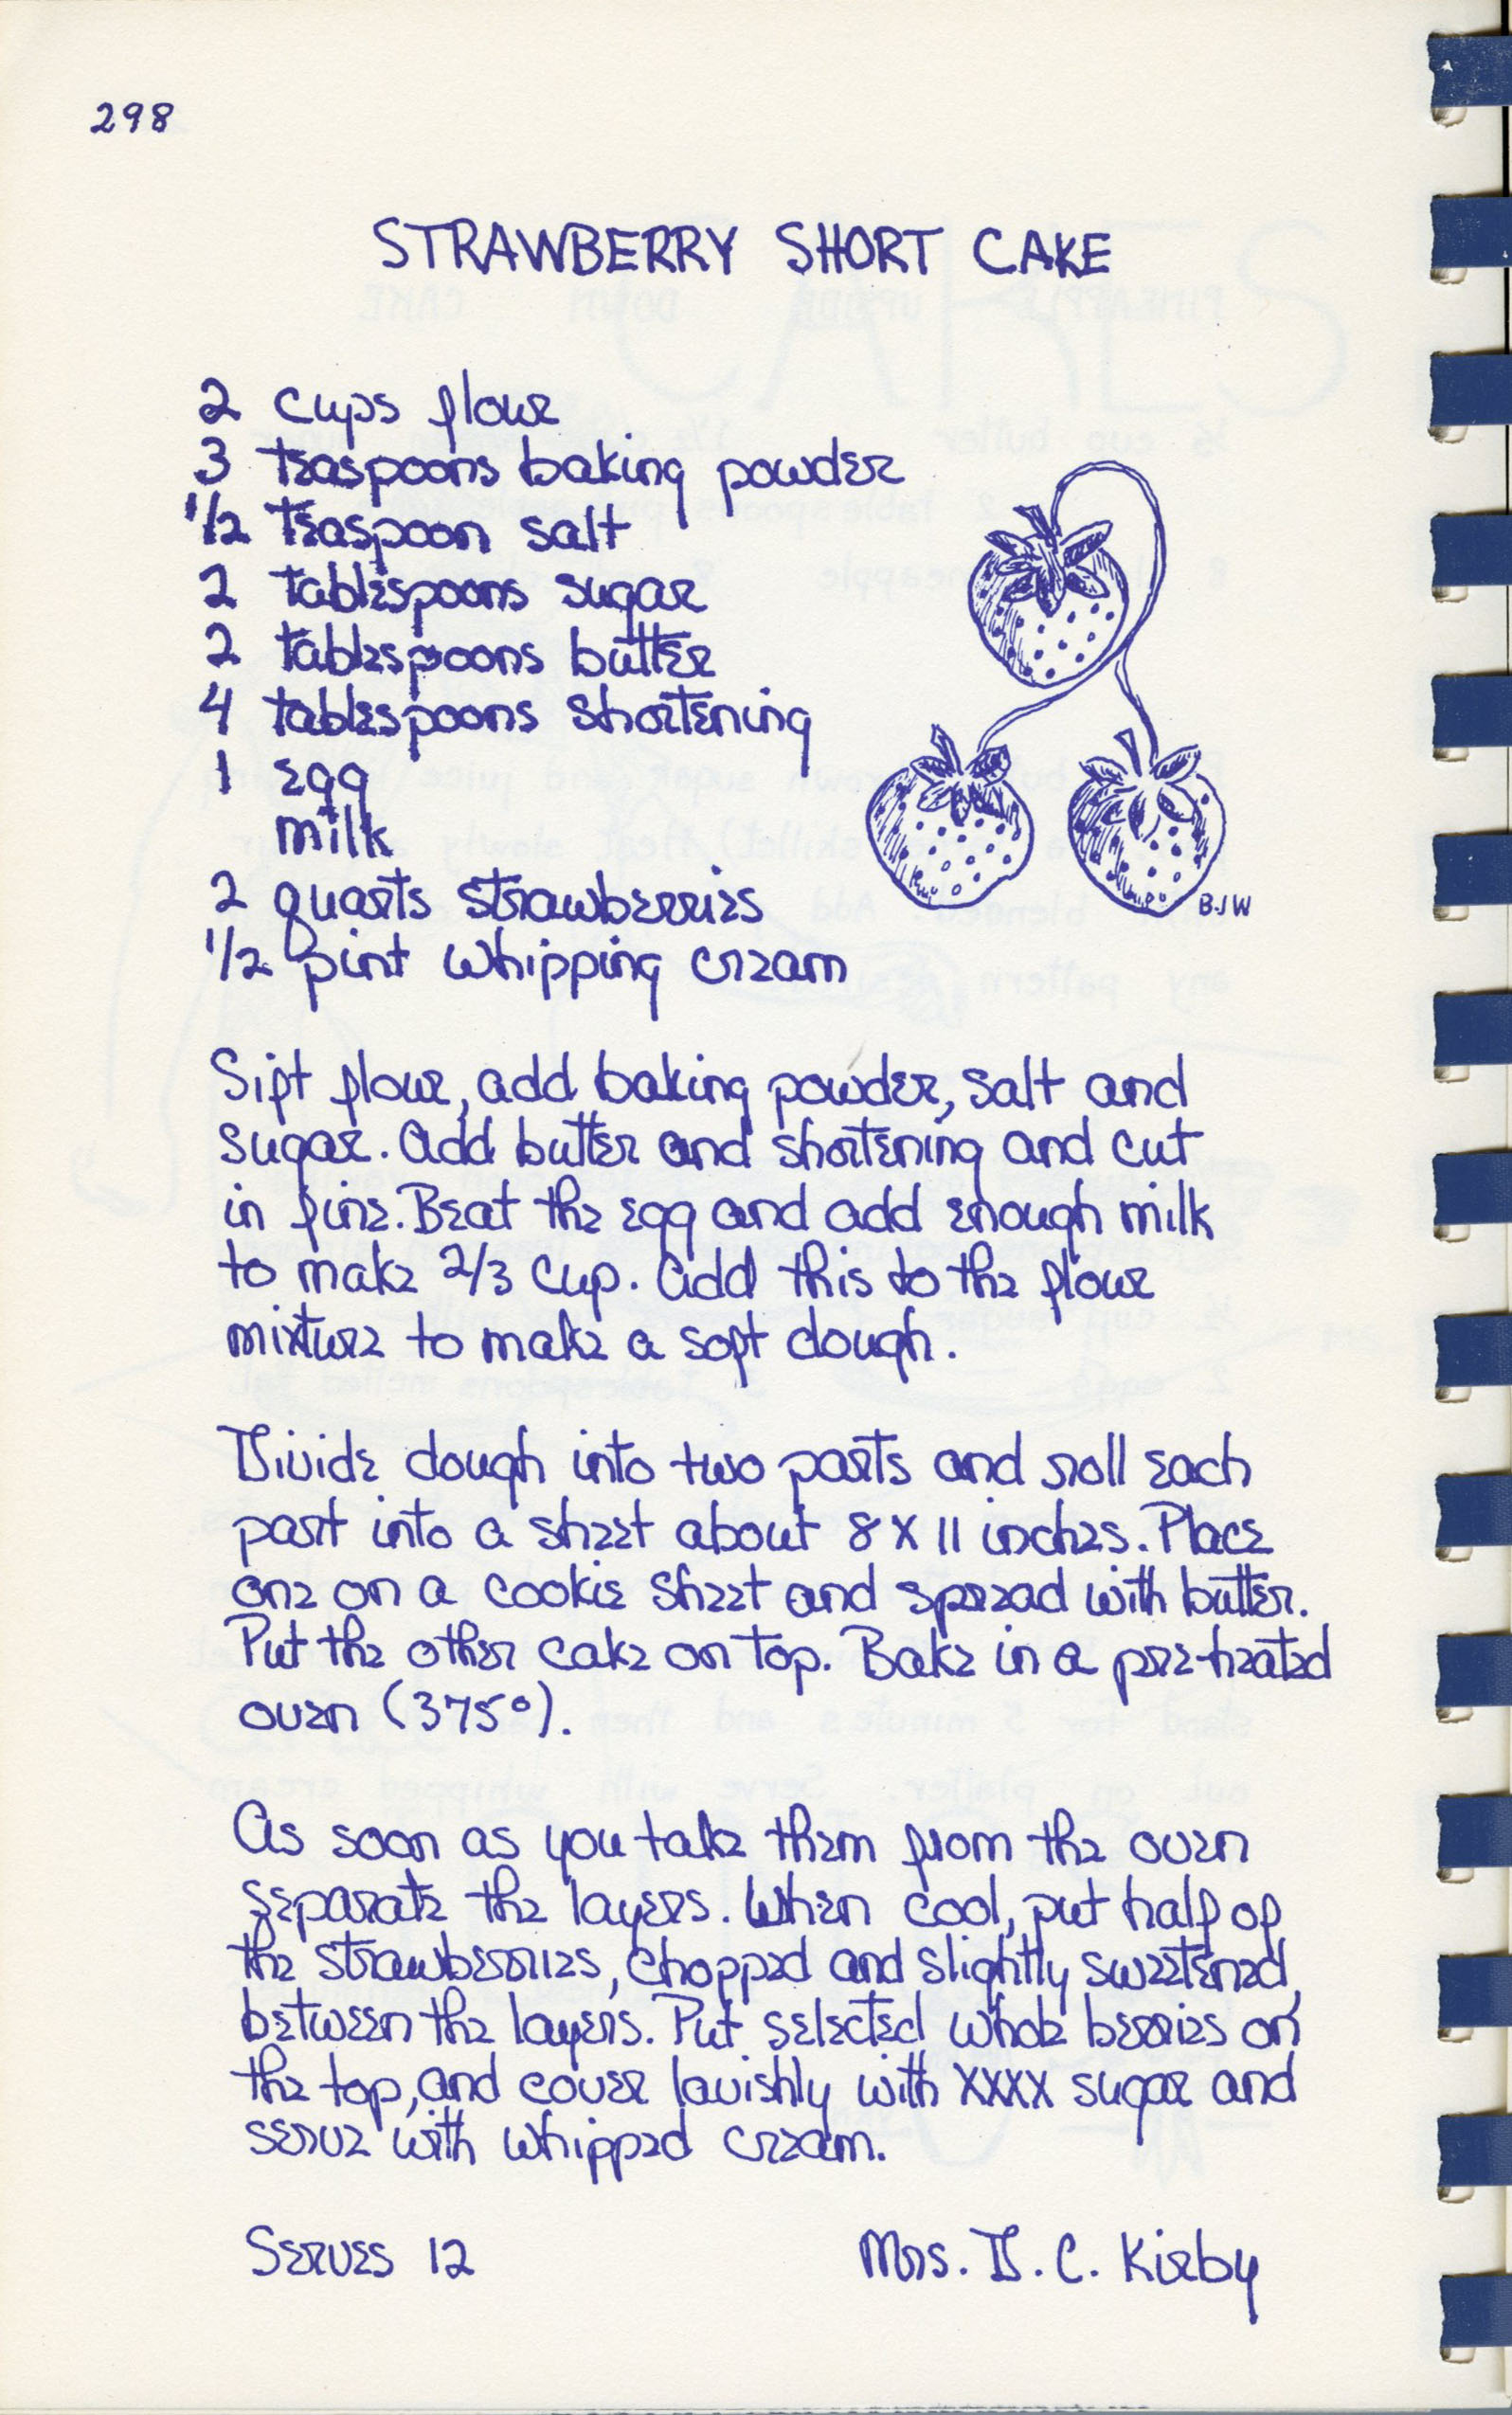 298
STRAWBERRY SHORT CAKE
2 cups flour
3 teaspoons baking powder
1/2 teaspoon salt
2 tablespoons sugar
2 tablespoons butter
4 tablespoons shortening
1 egg
milk
2 quarts strawberries
1/2 pint whipping cream
BJW
Sift flour, add baking powder, salt and
sugar. Add butter and shortening and cut
in fine. Beat the egg and add enough milk
to make 2/3 cup. Add this to the flour
mixture to make a soft dough.
Divide dough into two parts and roll each
part into a sheet about 8 X 11 inches. Place
one on a cookie sheet and spread with butter.
Put the other cake on top. Bake in a pre-heated
oven (375°).
As soon as you take them from the oven
separate the layers. When cool, put half of
the strawberries, chopped and slightly sweetened,
between the layers. Put selected whole berries on
the top, and cover lavishly with XXXX sugar and
serve with whipped cream.
Serves 12
Mrs. D. C. Kirby